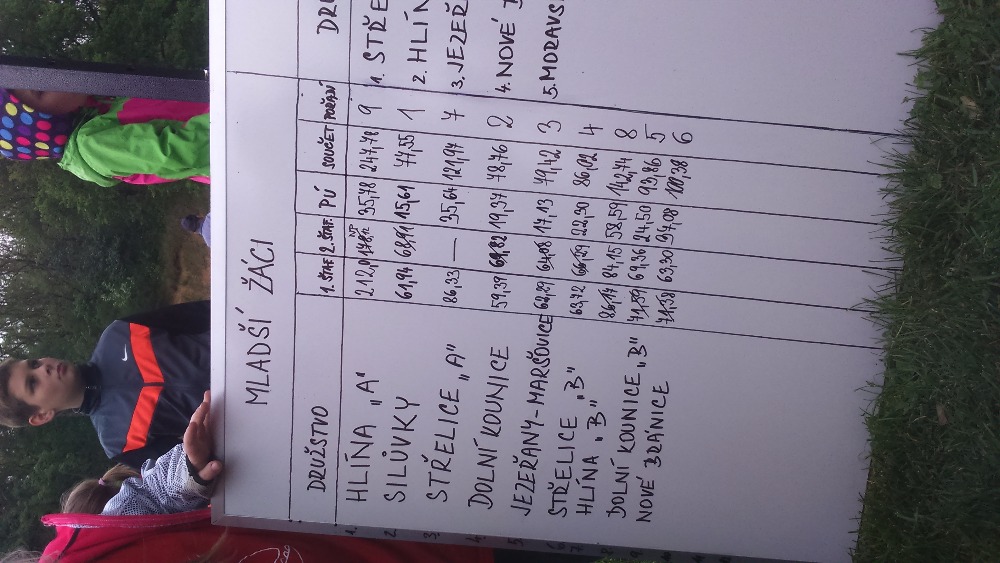 MLADŠÍ ŽÁCI
DRUŽSTVO 1. ŠTAF. 2. ŠTAF. PÚ SOUČET POŘADÍ
HLÍNA „A" 212,0 NP 35,78 247,78 9
SILŮVKY 61,94 63,91 15,61 77,55 1
STŘELICE „A" 86,33 — 35,64 121,97 7
DOLNÍ KOUNICE 59,39 19,37 78,76 2
JEZEŘANY-MARŠOVICE 62,29 64,08 17,13 79,42 3
STŘELICE „B" 63,72 66,59 22,30 86,02 4
HLÍNA „B" 86,14 84,15 58,59 142,74 8
DOLNÍ KOUNICE „B" 71,89 69,36 24,50 93,86 5
NOVÉ BRANICE 71,38 63,30 37,08 100,38 6
DRU
1. STŘE
2. HLÍN
3. JEZEŘ
4. NOVÉ
5. MORAVS